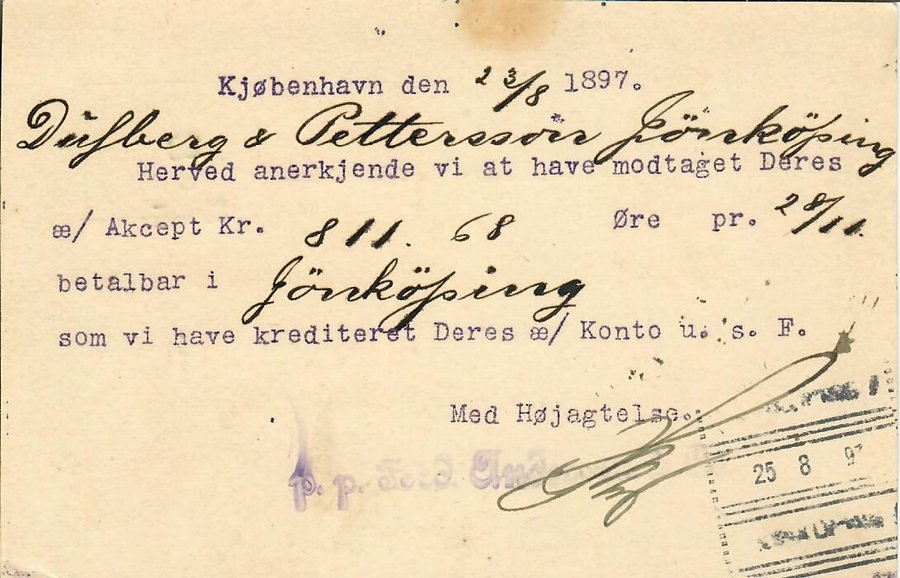 Kjøbenhavn den 23/8 1897.
& Pettersson Jönköping
Herved anerkjende vi at have modtaget Deres
æ/ Akcept Kr. 811. 68 Øre pr. 28/11.
betalbar i Jönköping
som vi have krediteret Deres æ/ Konto u. s. F.
Med Højagtelse.
p. p. Ferd.
25 8 97